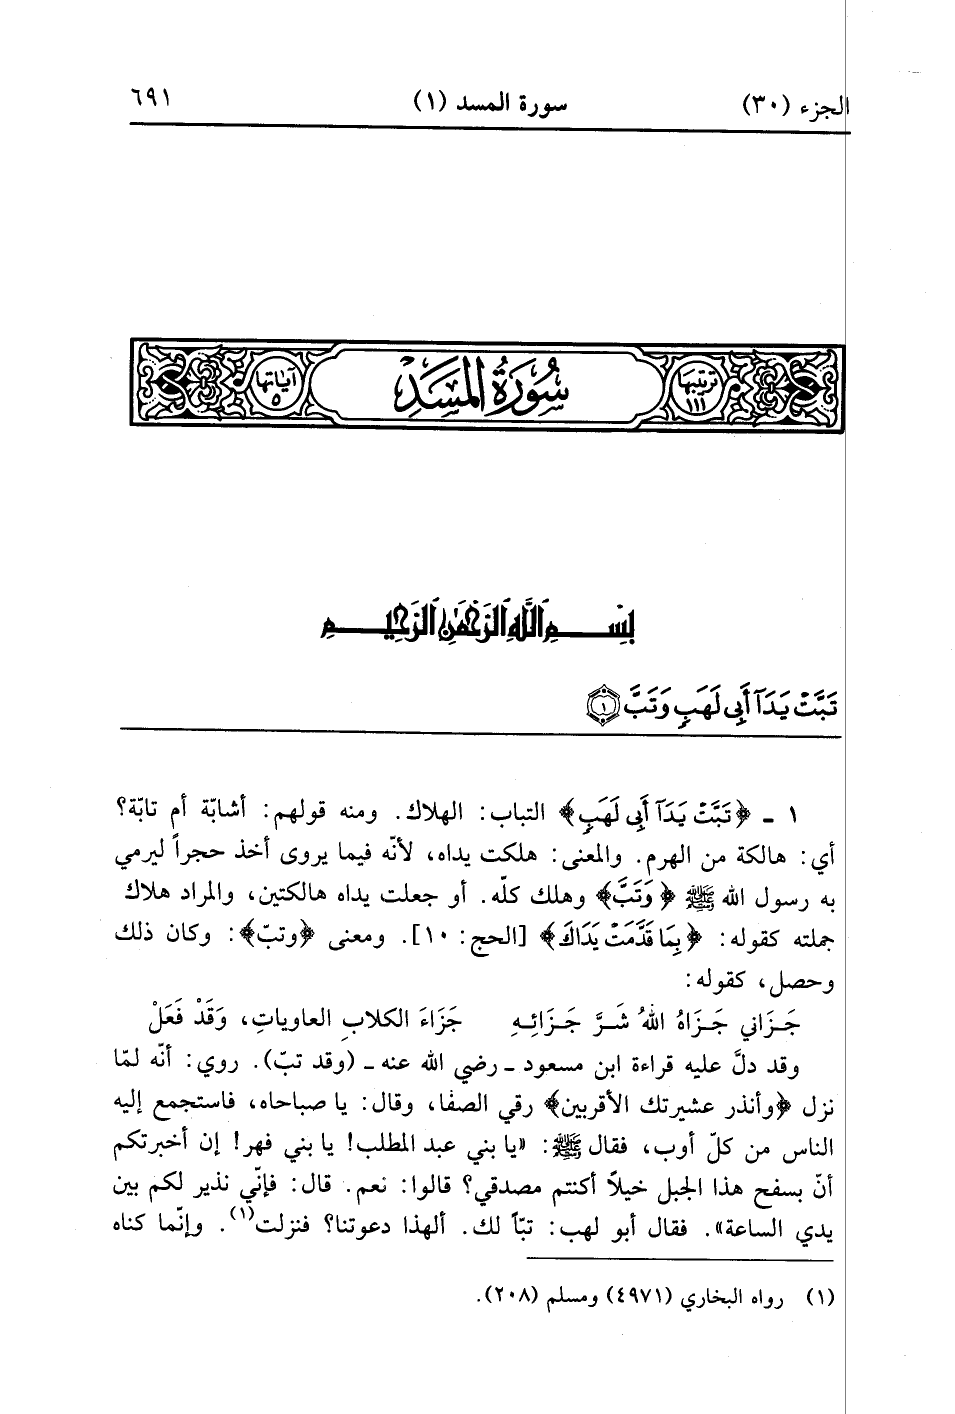 الجزء (٣٠)
سورة المسد (١)
٦٩١
ترتيبها ١١١
سُورَةُ المَسَدِ
آياتها ٥
بِسْمِ اللَّهِ الرَّحْمَٰنِ الرَّحِيمِ
تَبَّتْ يَدَآ أَبِى لَهَبٍ وَتَبَّ ﴿١﴾
١ ـ ﴿تَبَّتْ يَدَآ أَبِى لَهَبٍ﴾ التباب: الهلاك. ومنه قولهم: أشابّة أم تابّة؟
أي: هالكة من الهرم. والمعنى: هلكت يداه، لأنّه فيما يروى أخذ حجراً ليرمي
به رسول الله ﷺ ﴿وَتَبَّ﴾ وهلك كلّه. أو جعلت يداه هالكتين، والمراد هلاك
جملته كقوله: ﴿بِمَا قَدَّمَتْ يَدَاكَ﴾ [الحج: ١٠]. ومعنى ﴿وتبّ﴾: وكان ذلك
وحصل، كقوله:
جَـزَاني جَـزَاهُ اللهُ شَـرَّ جَـزَائِـهِ جَزَاءَ الكلابِ العاوياتِ، وَقَدْ فَعَلْ
وقد دلَّ عليه قراءة ابن مسعود ـ رضي الله عنه ـ (وقد تبّ). روي: أنّه لمّا
نزل ﴿وأنذر عشيرتك الأقربين﴾ رقي الصفا، وقال: يا صباحاه، فاستجمع إليه
الناس من كلّ أوب، فقال ﷺ: «يا بني عبد المطلب! يا بني فهر! إن أخبرتكم
أنّ بسفح هذا الجبل خيلاً أكنتم مصدقي؟ قالوا: نعم. قال: فإنّي نذير لكم بين
يدي الساعة». فقال أبو لهب: تبّاً لك. ألهذا دعوتنا؟ فنزلت(١). وإنّما كناه
(١) رواه البخاري (٤٩٧١) ومسلم (٢٠٨).